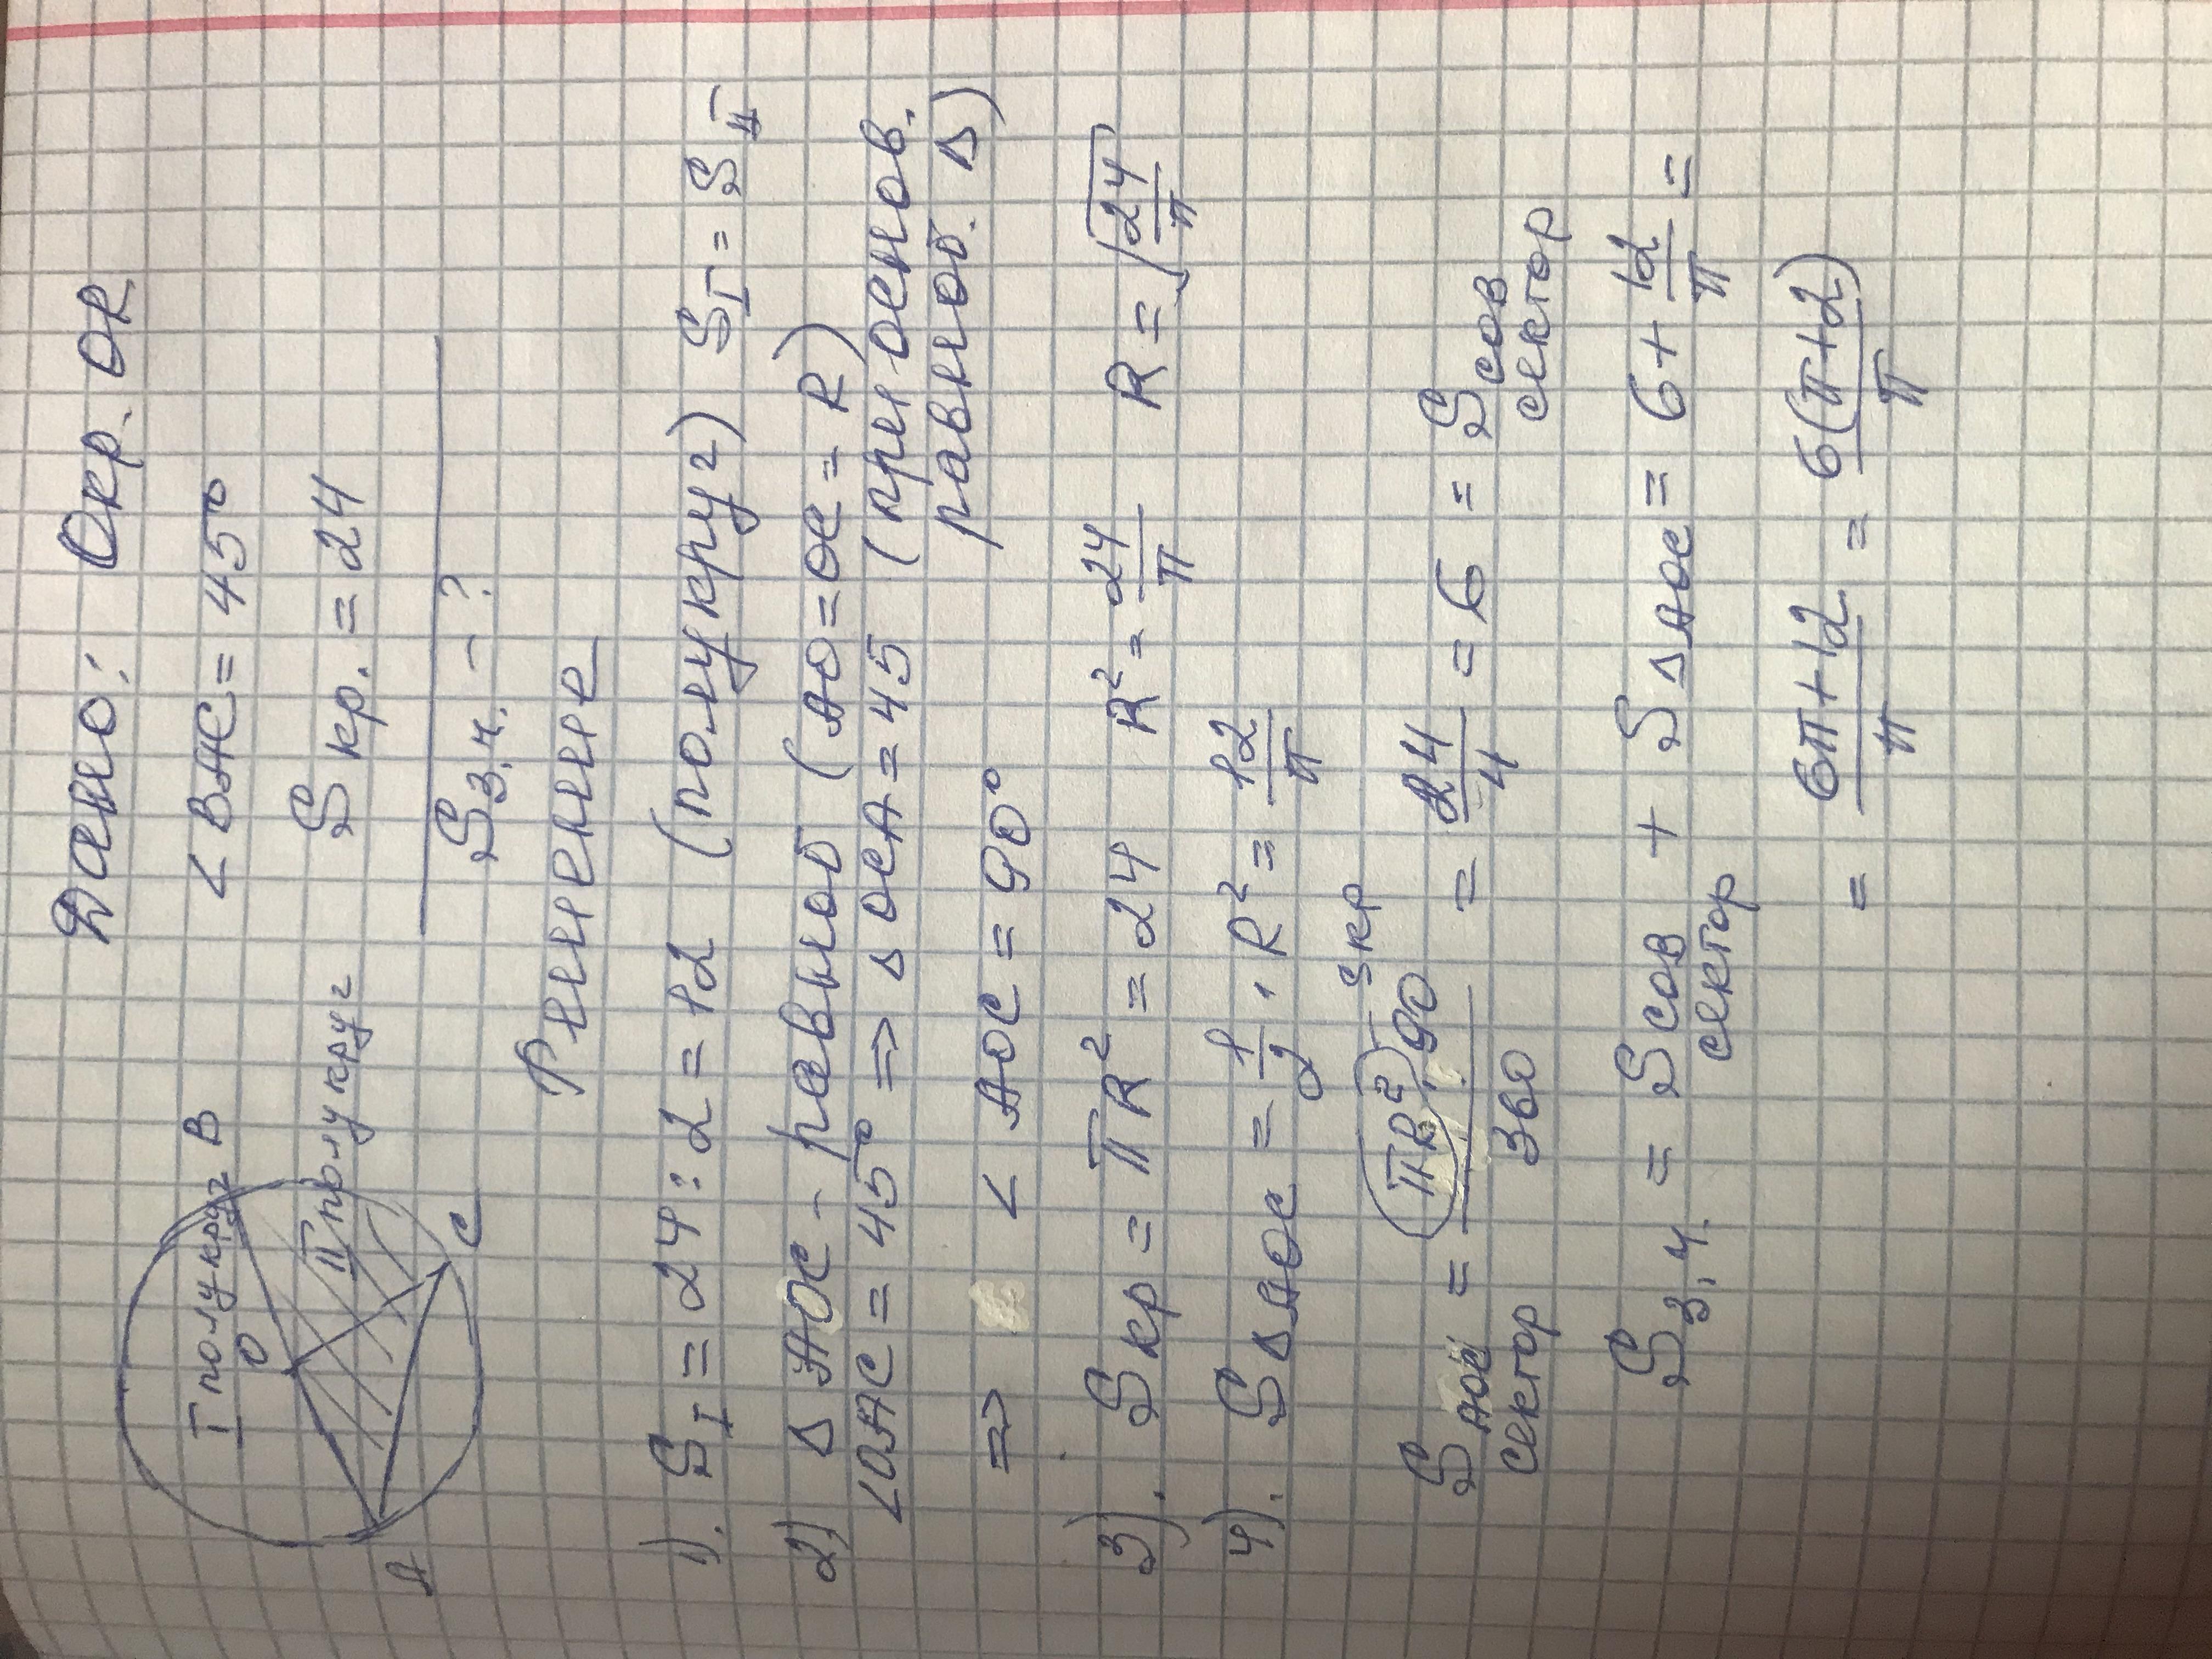 Дано: Окр. OR
I полукруг B
O
< BAC = 45°
II полукруг
S кр. = 24
A
C
S з.ч. - ?
Решение
1). S I = 24 : 2 = 12 (полукруг) S I = S II
2) Δ AOC - равноб (AO = OC = R)
∠OAC = 45° => Δ OCA = 45 (при основ.
равноб. Δ)
=> < AOC = 90°
3). S кр = πR² = 24 R² = 24/π R = √24/π
4). S Δ AOC = 1/2 · R² = 12/π
S кр
S AOC сектор = πR² · 90 / 360 = 24/4 = 6 = S COB сектор
S з.ч. = S COB сектор + S Δ AOC = 6 + 12/π =
= 6π+12 / π = 6(π+2) / π